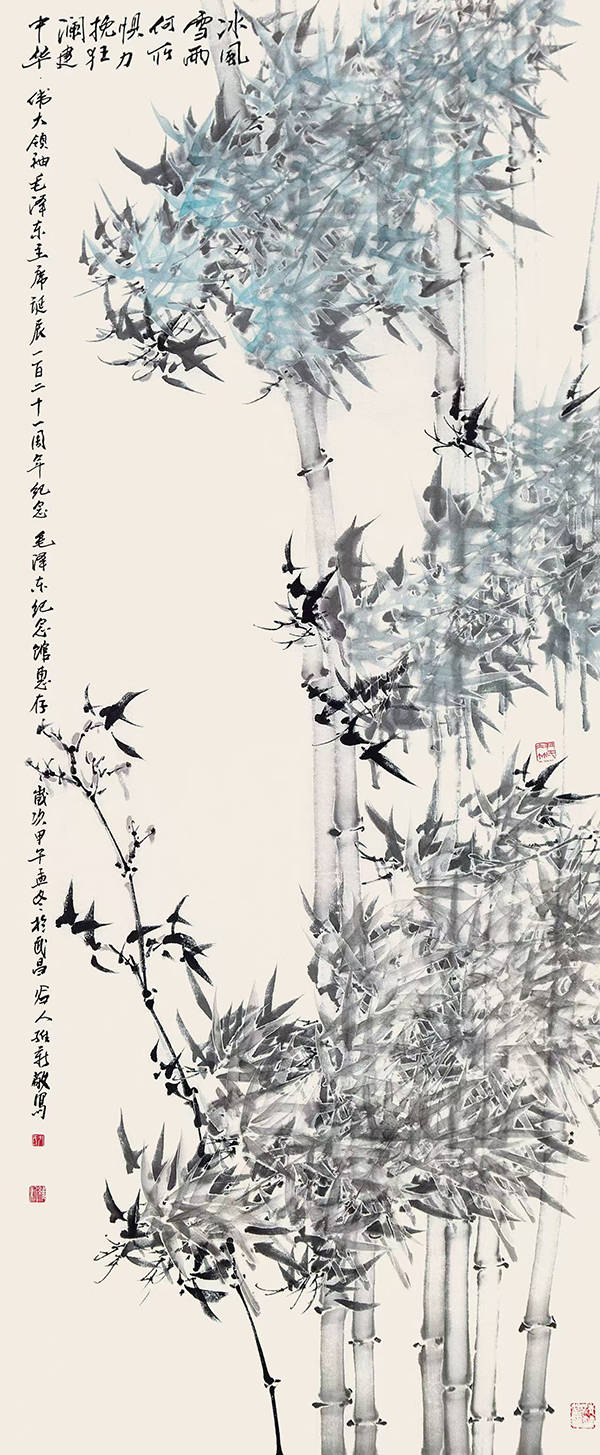 冰風
雪雨
何所
惧力
挽狂
澜建
中华·伟大领袖毛泽东主席诞辰一百二十一周年纪念 毛泽东纪念馆惠存 歲次甲午孟冬於武昌 人新敬寫